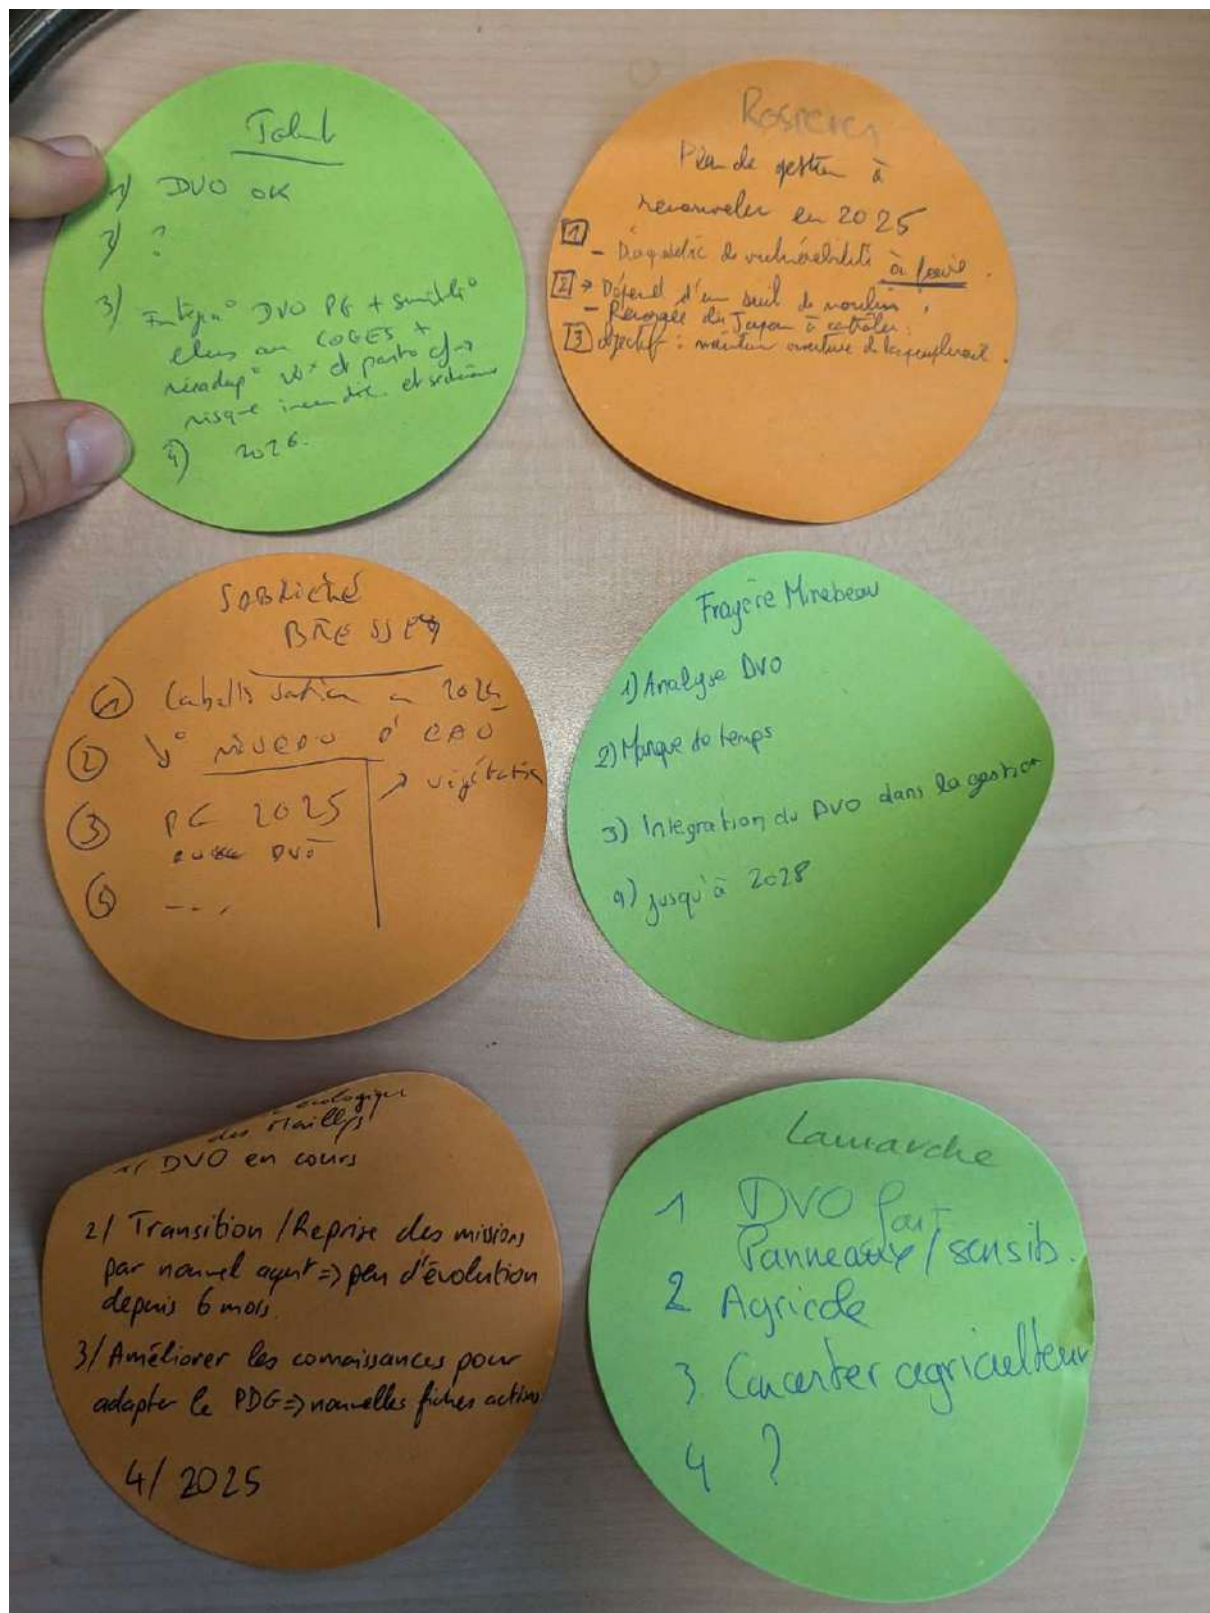 1) DVO OK
2) ?
3) DVO PG +
élus au COGES +
risque incendie et
4) 2026.
Plan de gestion à
renouveler en 2025
1
- Diagnostic de vulnérabilité à
2 → Dépend d'un seuil de moulin
- Renouée du Japon à contrôler.
3 objectif : maintien ouverture de
1
2 niveau d'eau
→ végétation
3 PG 2025
DVO
4 ---
Frayère Mirebeau
1) Analyse DVO
2) Manque de temps
3) Intégration du DVO dans la gestion
4) jusqu'à 2028
écologique
des Maillys
1/ DVO en cours
2/ Transition / Reprise des missions
par nouvel agent => peu d'évolution
depuis 6 mois
3/ Améliorer les connaissances pour
adapter le PDG => nouvelles fiches actions
4/ 2025
Lamarche
1 DVO fait
Panneaux / sensib.
2 Agricole
3. Concerter agriculteur
4 ?